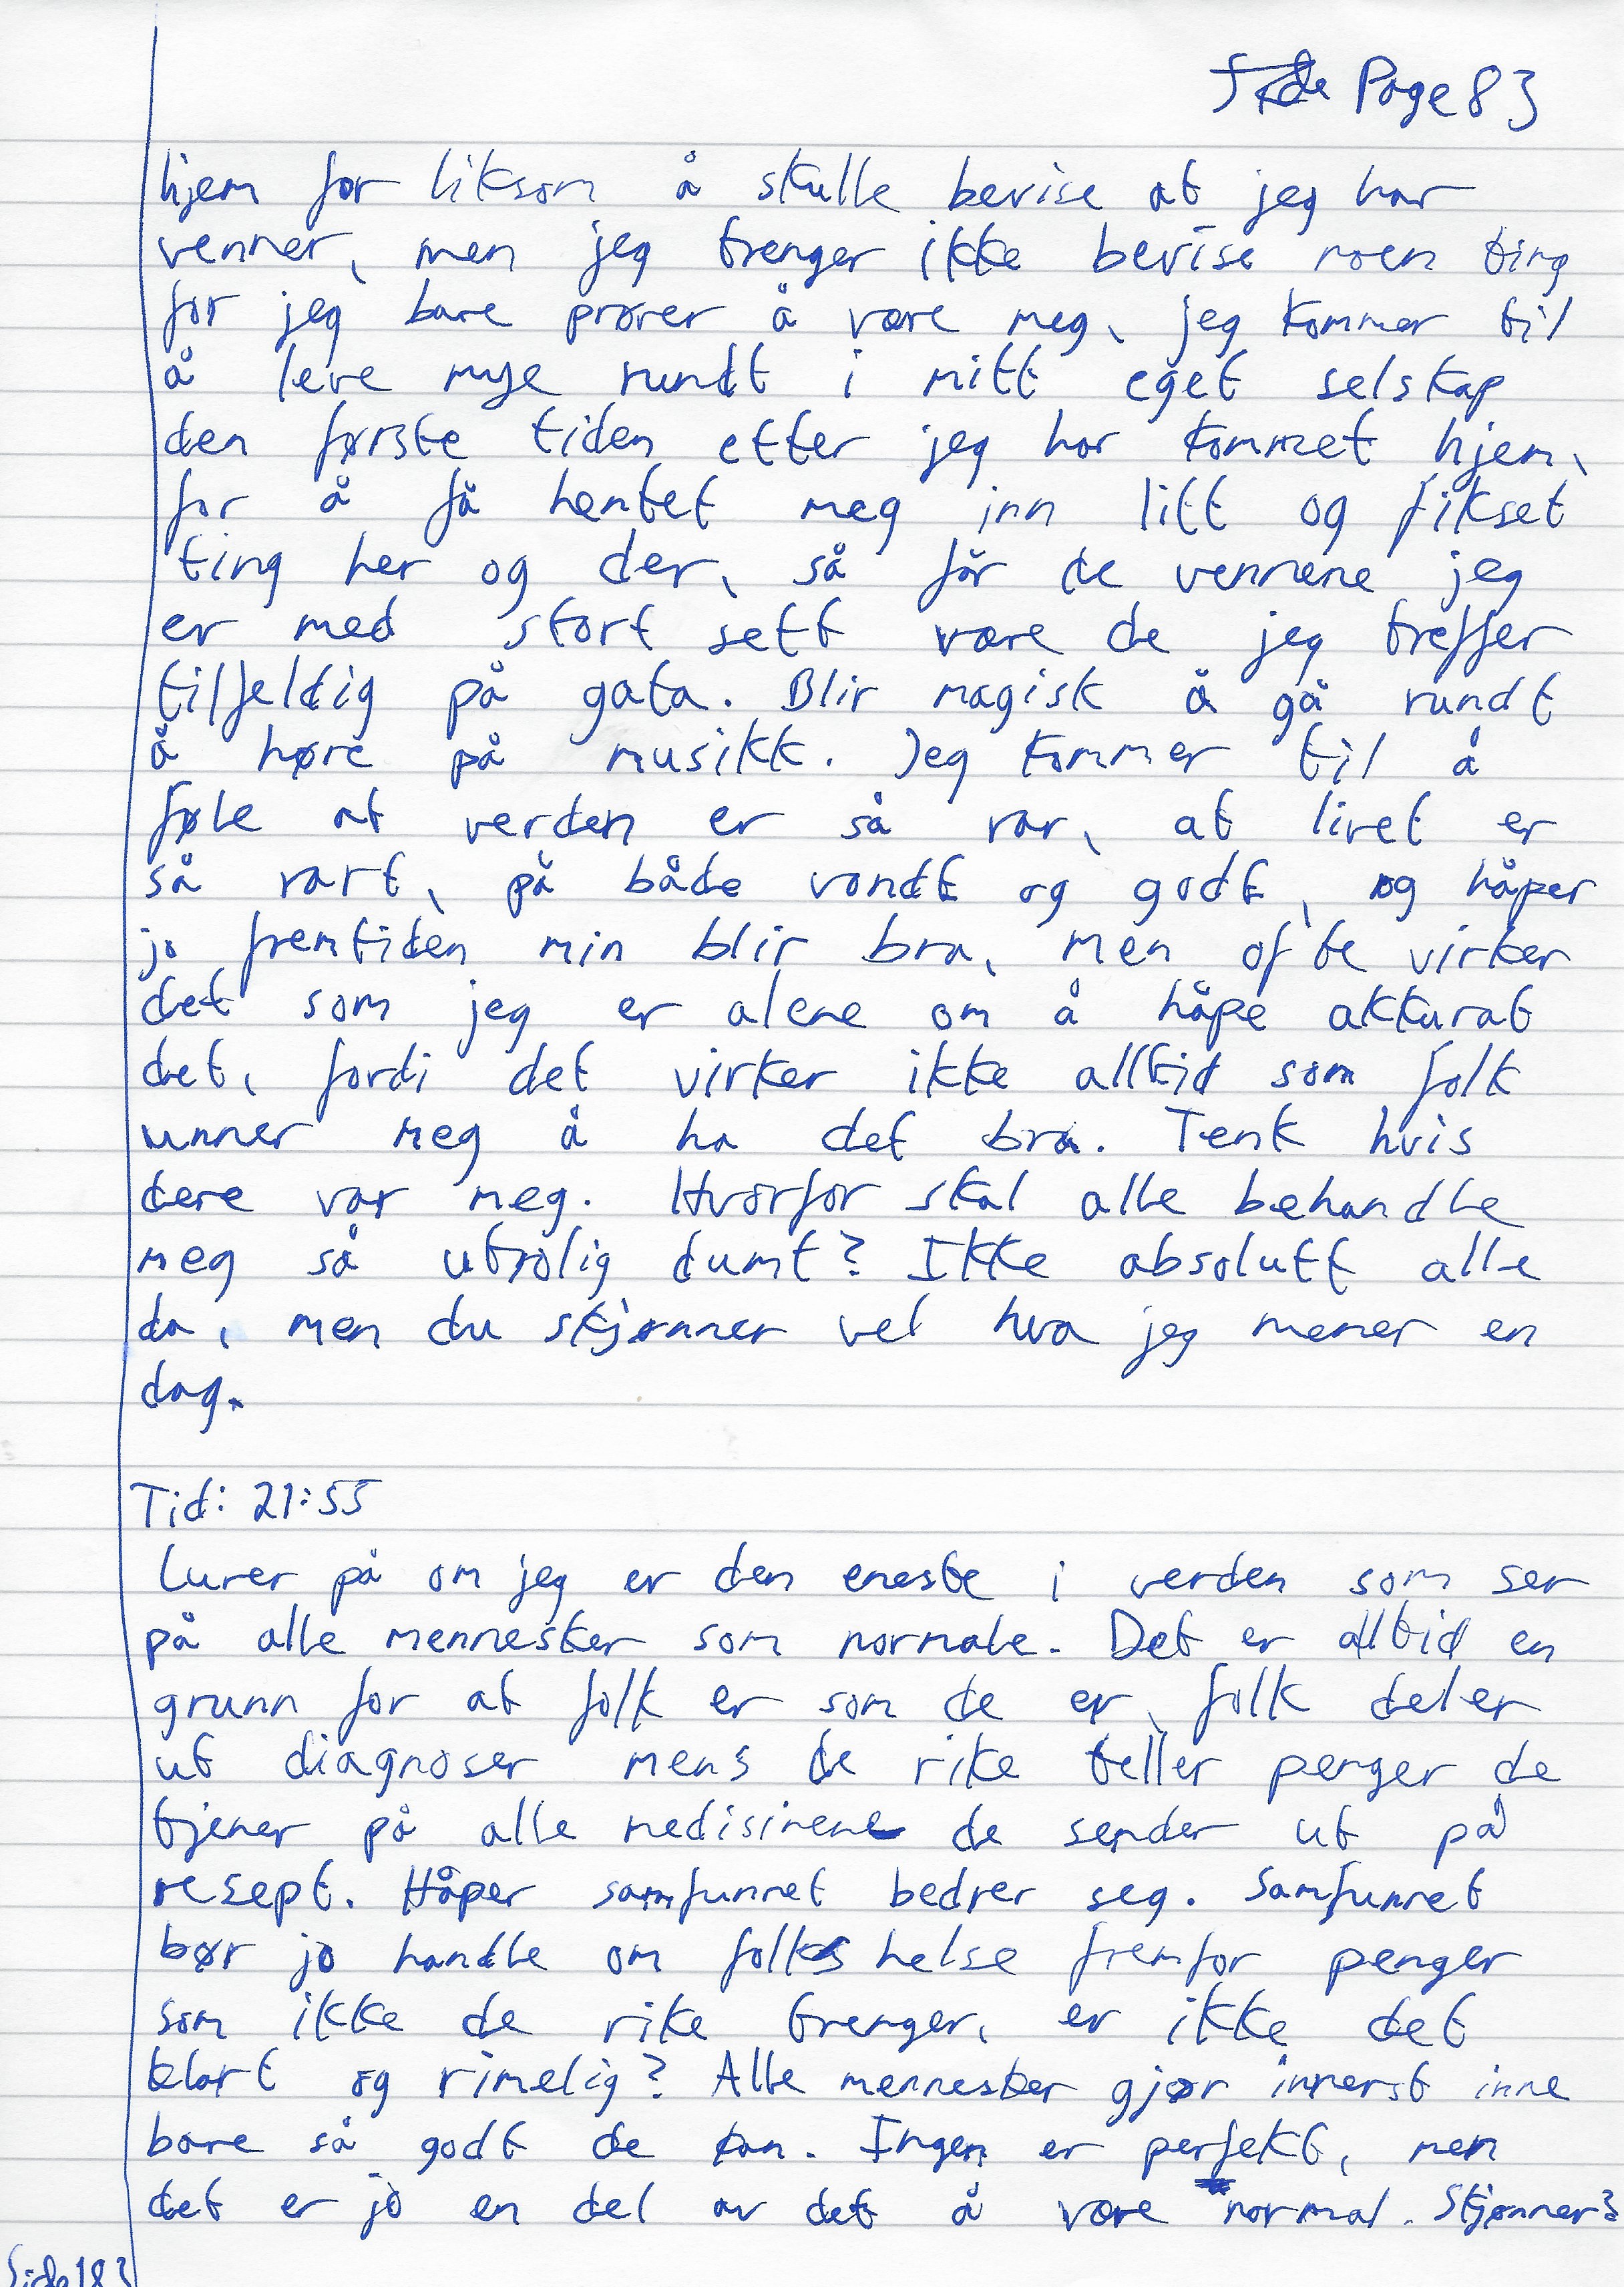 Side Page 83
hjem for liksom å skulle bevise at jeg har
venner, men jeg trenger ikke bevise noen ting
for jeg bare prøver å være meg, jeg kommer til
å leve mye rundt i mitt eget selskap
den første tiden etter jeg har kommet hjem,
for å få hentet meg inn litt og fikset
ting her og der, så får de vennene jeg
er med stort sett være de jeg treffer
tilfeldig på gata. Blir magisk å gå rundt
å høre på musikk. Jeg kommer til å
føle at verden er så rar, at livet er
så rart, på både vondt og godt, og håper
jo fremtiden min blir bra, men ofte virker
det som jeg er alene om å håpe akkurat
det, fordi det virker ikke alltid som folk
unner meg å ha det bra. Tenk hvis
dere var meg. Hvorfor skal alle behandle
meg så utrolig dumt? Ikke absolutt alle
da, men du skjønner vel hva jeg mener en
dag.
Tid: 21:55
Lurer på om jeg er den eneste i verden som ser
på alle mennesker som normale. Det er alltid en
grunn for at folk er som de er, folk deler
ut diagnoser mens de rike teller penger de
tjener på alle medisinene de sender ut på
resept. Håper samfunnet bedrer seg. Samfunnet
bør jo handle om folks helse fremfor penger
som ikke de rike trenger, er ikke det
klart og rimelig? Alle mennesker gjør innerst inne
bare så godt de kan. Ingen er perfekt, men
det er jo en del av det å være normal. Skjønner?
Side 183